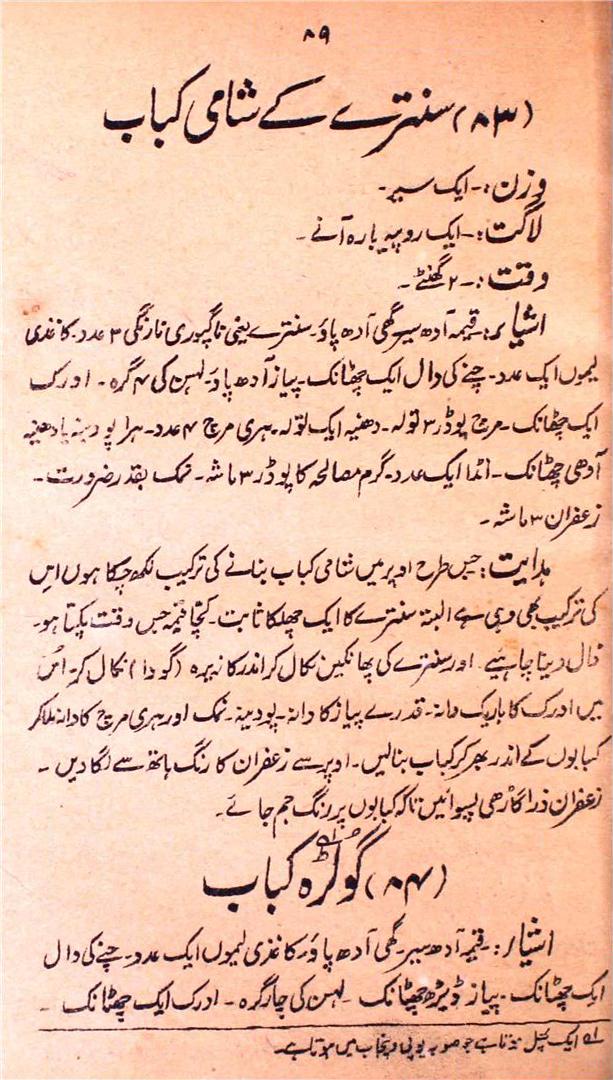 ۸۹
(۸۳) سنترے کے شامی کباب
وزن :- ایک سیر -
لاگت :- ایک روپیہ بارہ آنے -
وقت :- ۲ گھنٹے -
اشیاء :- قیمہ آدھ سیر - گھی آدھ پاؤ - سنترے یعنی ناگپوری نارنگی ۳ عدد - کاغذی
لیموں ایک عدد - چنے کی دال ایک چھٹانک - پیاز آدھ پاؤ - لہسن کی ۴ گرہ - ادرک
ایک چھٹانک - مرچ پوڈر ۳ تولہ - دھنیہ ایک تولہ - ہری مرچ ۴ عدد - ہرا پودینہ یا دھنیہ
آدھی چھٹانک - انڈا ایک عدد - گرم مصالحہ کا پوڈر ۳ ماشہ - نمک بقدر ضرورت -
زعفران ۳ ماشہ -
ہدایت :- جس طرح اوپر میں شامی کباب بنانے کی ترکیب لکھ چکا ہوں اس
کی ترکیب بھی وہی ہے البتہ سنترے کا ایک چھلکا ثابت - کچا قیمہ جس وقت پکتا ہو -
ڈال دینا چاہیے - اور سنترے کی پھانکیں نکال کر اندر کا زیرہ (گودا) نکال کر - اس
میں ادرک کا باریک دانہ - قدرے پیاز کا دانہ - پودینہ - نمک اور ہری مرچ کا دانہ ملا کر
کبابوں کے اندر بھر کر کباب بنالیں - اوپر سے زعفران کا رنگ ہاتھ سے لگا دیں -
زعفران ذرا گاڑھی پسوائیں تاکہ کبابوں پر رنگ جم جائے -
(۸۴) گولڑہ کباب
اشیاء :- قیمہ آدھ سیر - گھی آدھ پاؤ - کاغذی لیموں ایک عدد - چنے کی دال
ایک چھٹانک - پیاز ڈیڑھ چھٹانک - لہسن کی چار گرہ - ادرک ایک چھٹانک -
ایک پھل ہوتا ہے جو صوبہ یوپی و پنجاب میں ہوتا ہے -